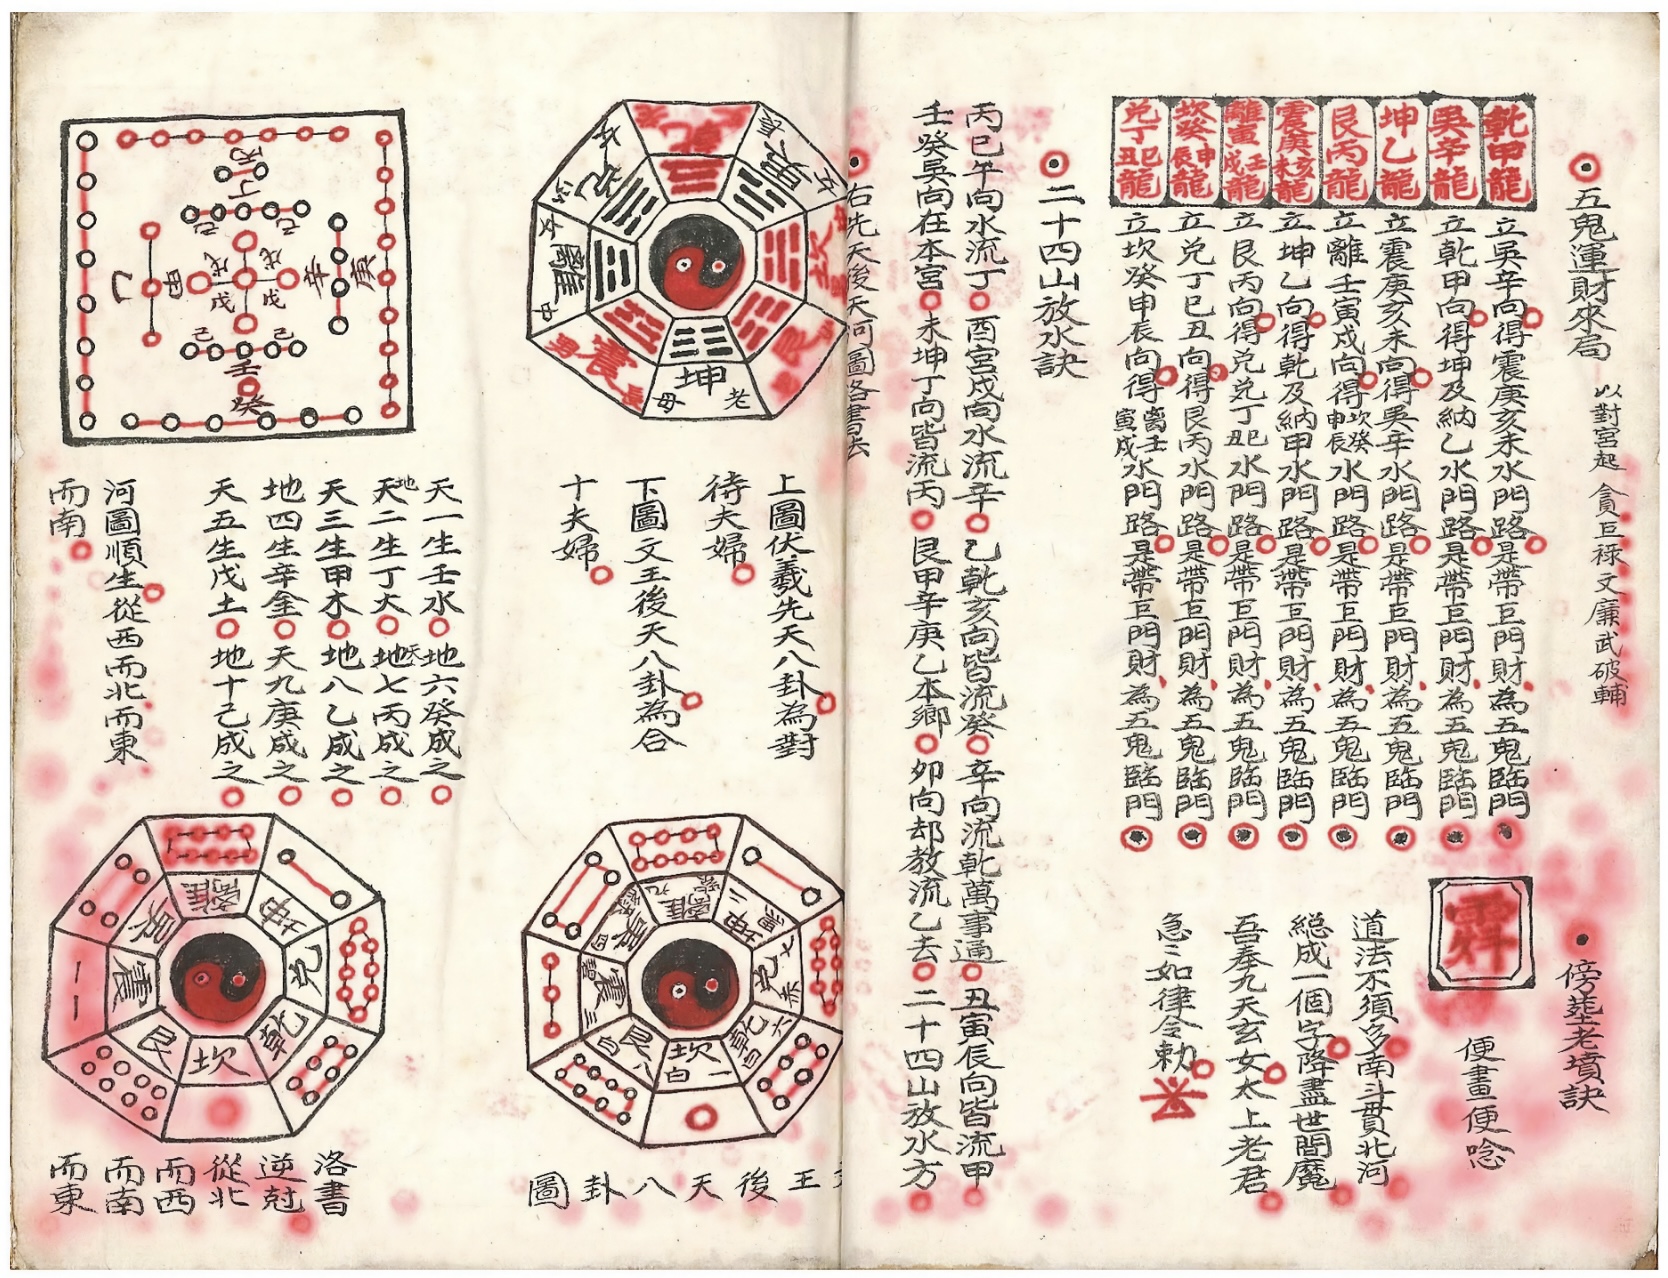 五鬼運財來局
以對宮起 貪巨祿文廉武破輔
乾甲龍
立巽辛向得震庚亥未水門路是帶巨門財為五鬼臨門
巽辛龍
立乾甲向得坤及納乙水門路是帶巨門財為五鬼臨門
坤乙龍
立震庚亥未向得巽辛水門路是帶巨門財為五鬼臨門
艮丙龍
立離壬寅戌向得坎癸申辰水門路是帶巨門財為五鬼臨門
震庚亥未龍
立坤乙向得乾及納甲水門路是帶巨門財為五鬼臨門
離寅壬戌龍
立艮丙向得兌兌丁巳丑水門路是帶巨門財為五鬼臨門
坎癸申辰龍
立兌丁巳丑向得艮丙水門路是帶巨門財為五鬼臨門
兌丁巳丑龍
立坎癸申辰向得離壬寅戌水門路是帶巨門財為五鬼臨門
傍塟老墳訣
便畫便唸
道法不須多南斗貫北河
總成一個字降盡世間魔
吾奉九天玄女太上老君
急々如律令勅
二十四山放水訣
丙巳午向水流丁 酉宮戌向水流辛 乙乾亥向皆流癸 辛向流乾萬事通 丑寅辰向皆流甲
壬癸巽向在本宮 未坤丁向皆流丙 艮甲辛庚乙本鄉 卯向却教流乙去 二十四山放水方
右先天後天河圖洛書去
乾
巽
坎
艮
坤
老母
震
長男
離
中女
兌
上圖伏羲先天八卦為對
待夫婦
下圖文王後天八卦為合
十夫婦
離九紫
坤二黑
兌七赤
乾六白
坎一白
艮八白
震三碧
巽四綠
王後天八卦圖
丙
丁
己
己
戊
戊
戊
戊
甲
乙
辛
庚
己
己
壬
癸
天一生壬水 地六癸成之
天地二生丁火 地天七丙成之
天三生甲木 地八乙成之
地四生辛金 天九庚成之
天五生戊土 地十己成之
河圖順生從西而北而東
而南
離
坤
兌
乾
坎
艮
震
巽
洛書
逆尅
從北
而西
而南
而東